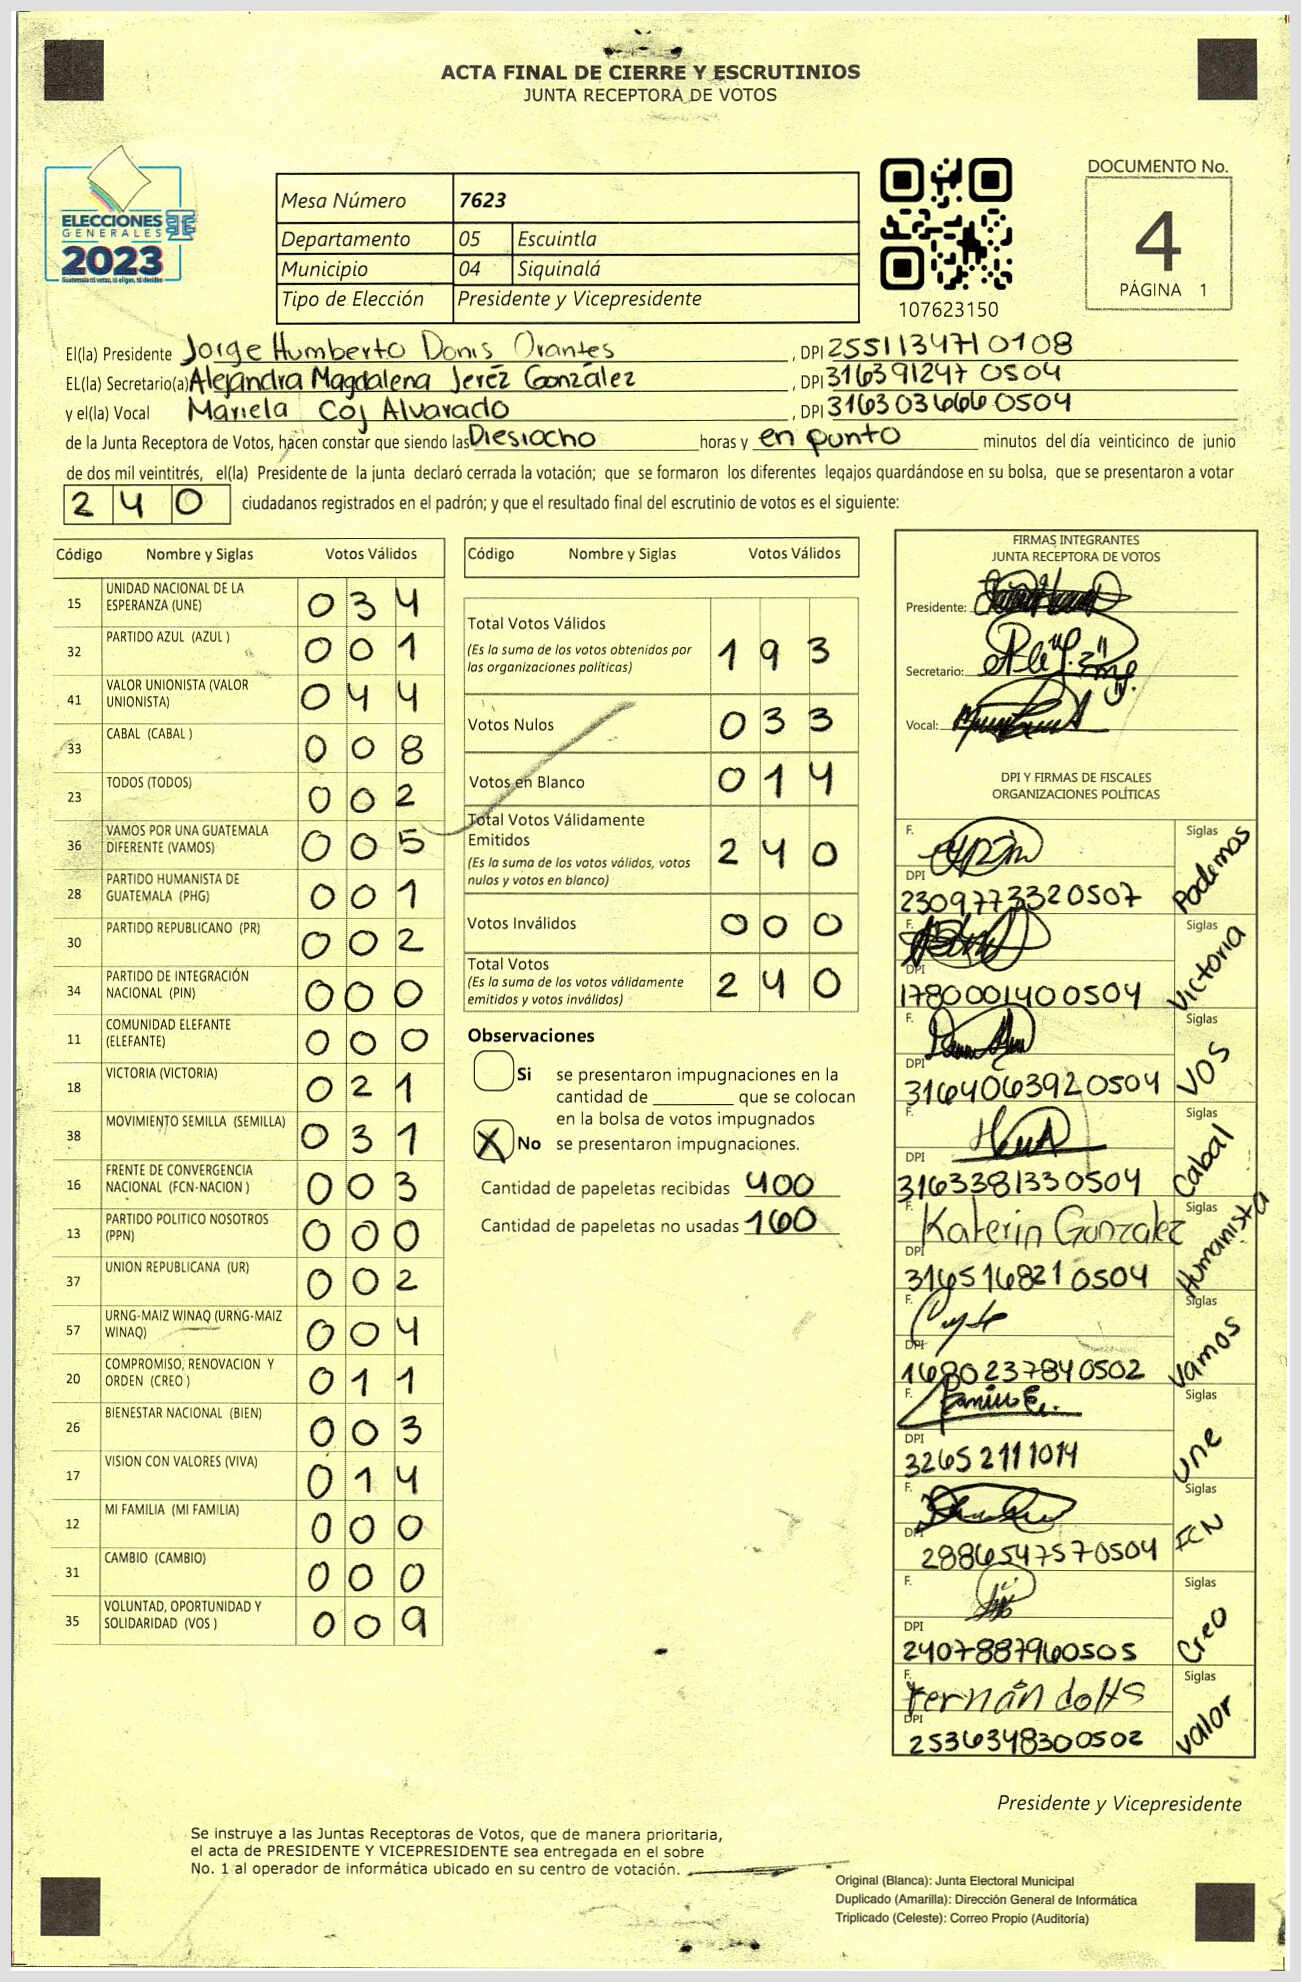 ACTA FINAL DE CIERRE Y ESCRUTINIOS
JUNTA RECEPTORA DE VOTOS
ELECCIONES
GENERALES
2023
Mesa Número 7623
Departamento 05 Escuintla
Municipio 04 Siquinalá
Tipo de Elección Presidente y Vicepresidente
107623150
DOCUMENTO No.
4
PÁGINA 1
El(la) Presidente Jorge Humberto Donis Orantes, DPI 2551134710108
EL(la) Secretario(a) Alejandra Magdalena Jeréz González, DPI 3163912470504
y el(la) Vocal Mariela Coj Alvarado, DPI 3163036660504
de la Junta Receptora de Votos, hacen constar que siendo las Diesiocho horas y en punto minutos del día veinticinco de junio
de dos mil veintitrés, el(la) Presidente de la junta declaró cerrada la votación; que se formaron los diferentes legajos quardándose en su bolsa, que se presentaron a votar
240 ciudadanos registrados en el padrón; y que el resultado final del escrutinio de votos es el siguiente:
Código Nombre y Siglas Votos Válidos
15 UNIDAD NACIONAL DE LA
ESPERANZA (UNE) 034
32 PARTIDO AZUL (AZUL ) 001
41 VALOR UNIONISTA (VALOR
UNIONISTA) 044
33 CABAL (CABAL ) 008
23 TODOS (TODOS) 002
36 VAMOS POR UNA GUATEMALA
DIFERENTE (VAMOS) 005
28 PARTIDO HUMANISTA DE
GUATEMALA (PHG) 001
30 PARTIDO REPUBLICANO (PR) 002
34 PARTIDO DE INTEGRACIÓN
NACIONAL (PIN) 000
11 COMUNIDAD ELEFANTE
(ELEFANTE) 000
18 VICTORIA (VICTORIA) 021
38 MOVIMIENTO SEMILLA (SEMILLA) 031
16 FRENTE DE CONVERGENCIA
NACIONAL (FCN-NACION ) 003
13 PARTIDO POLITICO NOSOTROS
(PPN) 000
37 UNION REPUBLICANA (UR) 002
57 URNG-MAIZ WINAQ (URNG-MAIZ
WINAQ) 004
20 COMPROMISO, RENOVACION Y
ORDEN (CREO ) 011
26 BIENESTAR NACIONAL (BIEN) 003
17 VISION CON VALORES (VIVA) 014
12 MI FAMILIA (MI FAMILIA) 000
31 CAMBIO (CAMBIO) 000
35 VOLUNTAD, OPORTUNIDAD Y
SOLIDARIDAD (VOS ) 009
Código Nombre y Siglas Votos Válidos
Total Votos Válidos 193
(Es la suma de los votos obtenidos por
las organizaciones políticas)
Votos Nulos 033
Votos en Blanco 014
Total Votos Válidamente
Emitidos 240
(Es la suma de los votos válidos, votos
nulos y votos en blanco)
Votos Inválidos 000
Total Votos 240
(Es la suma de los votos válidamente
emitidos y votos inválidos)
Observaciones
Si se presentaron impugnaciones en la
cantidad de ________ que se colocan
en la bolsa de votos impugnados
X No se presentaron impugnaciones.
Cantidad de papeletas recibidas 400
Cantidad de papeletas no usadas 160
FIRMAS INTEGRANTES
JUNTA RECEPTORA DE VOTOS
Presidente:
Secretario:
Vocal:
DPI Y FIRMAS DE FISCALES
ORGANIZACIONES POLÍTICAS
F. Siglas Podemos
DPI 2309773320507
F. Siglas Victoria
DPI 1780001400504
F. Siglas VOS
DPI 3164063920504
F. Siglas Cabal
DPI 3163381330504
F. Katerin Gonzalez Siglas Humanista
DPI 3165168210504
F. Siglas Vamos
DPI 1680237840502
F. Siglas Une
DPI 32652111014
F. Siglas FCN
DPI 2886547570504
F. Siglas Creo
DPI 2407887960505
F. Siglas Valor
DPI 2536348300502
Presidente y Vicepresidente
Se instruye a las Juntas Receptoras de Votos, que de manera prioritaria,
el acta de PRESIDENTE Y VICEPRESIDENTE sea entregada en el sobre
No. 1 al operador de informática ubicado en su centro de votación.
Original (Blanca): Junta Electoral Municipal
Duplicado (Amarilla): Dirección General de Informática
Triplicado (Celeste): Correo Propio (Auditoría)